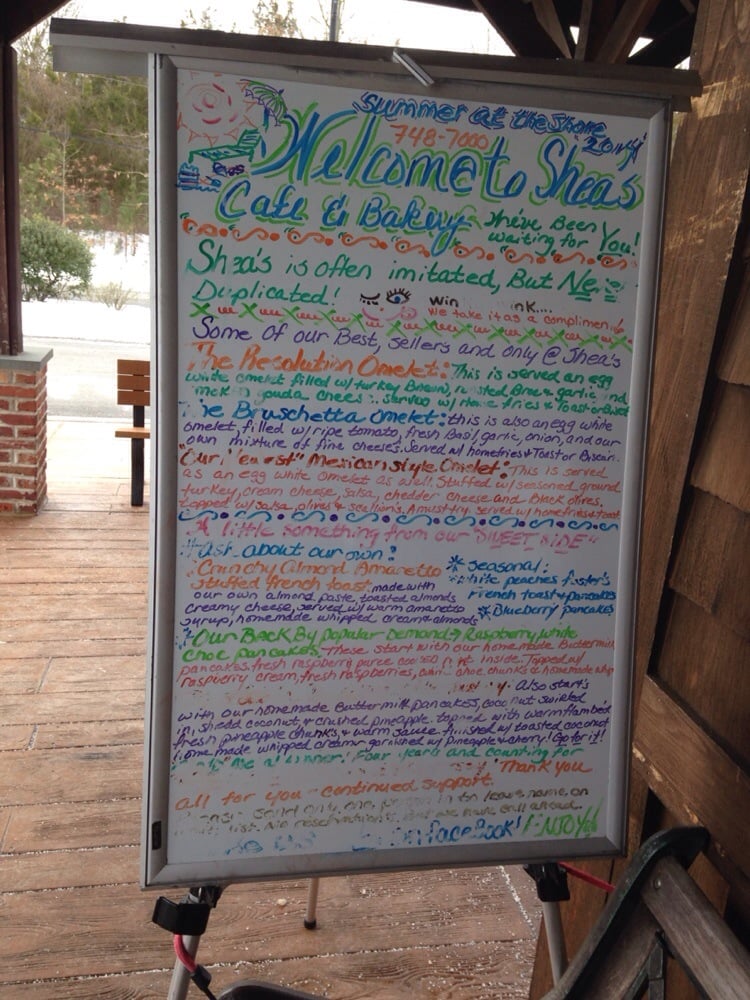 Summer at the Shore
748-7000
Welcome to Shea's
Cafe & Bakery
We've Been
waiting for You!
Shea's is often imitated, But
Duplicated!
We take it as a compliment!
Some of our Best, Sellers and only @ Shea's
The Resolution Omelet: This is served an egg
white omelet filled w/ turkey garlic and
gouda cheese served w/ Home fries & Toast or
The Bruschetta omelet: this is also an egg white
omelet, filled w/ ripe tomato, fresh Basil, garlic, onion, and our
own mixture of fine cheeses. Served w/ homefries & Toast or
"Our " Mexican style Omelet: This is served
as an egg white omelet as well. Stuffed w/ seasoned ground
turkey, cream cheese, salsa, chedder cheese and Black olives.
topped w/ salsa, olives & scallions. A must try. served w/ homefries & toast
A little something from our "SWEET SIDE"
Ask about our own!
Crunchy Almond Amaretto
stuffed french toast. made with
our own almond paste, toasted almonds
creamy cheese, served w/ warm amaretto
syrup, homemade whipped cream & almonds
* Seasonal:
white peaches foster's
French toast & pancakes
* Blueberry pancakes
Our Back By popular Demand → Raspberry, white
choc pancakes. These start with our homemade Buttermilk
pancakes, fresh raspberry puree inside. Topped w/
raspberry cream, fresh raspberries, choc chunks & homemade whip
Also starts
with our homemade Buttermilk pancakes, coconut swirled
in, coconut, & crushed pineapple. topped with warm flambe'd
fresh pineapple chunks, & warm sauce finished w/ toasted coconut
homemade whipped cream garnished w/ pineapple & cherry! Go for it!
a winner! Four years and counting for
Thank you
all for you continued support.
send only one in to leave name on
list. No reservations, call ahead.
on FaceBook! ENJOY!